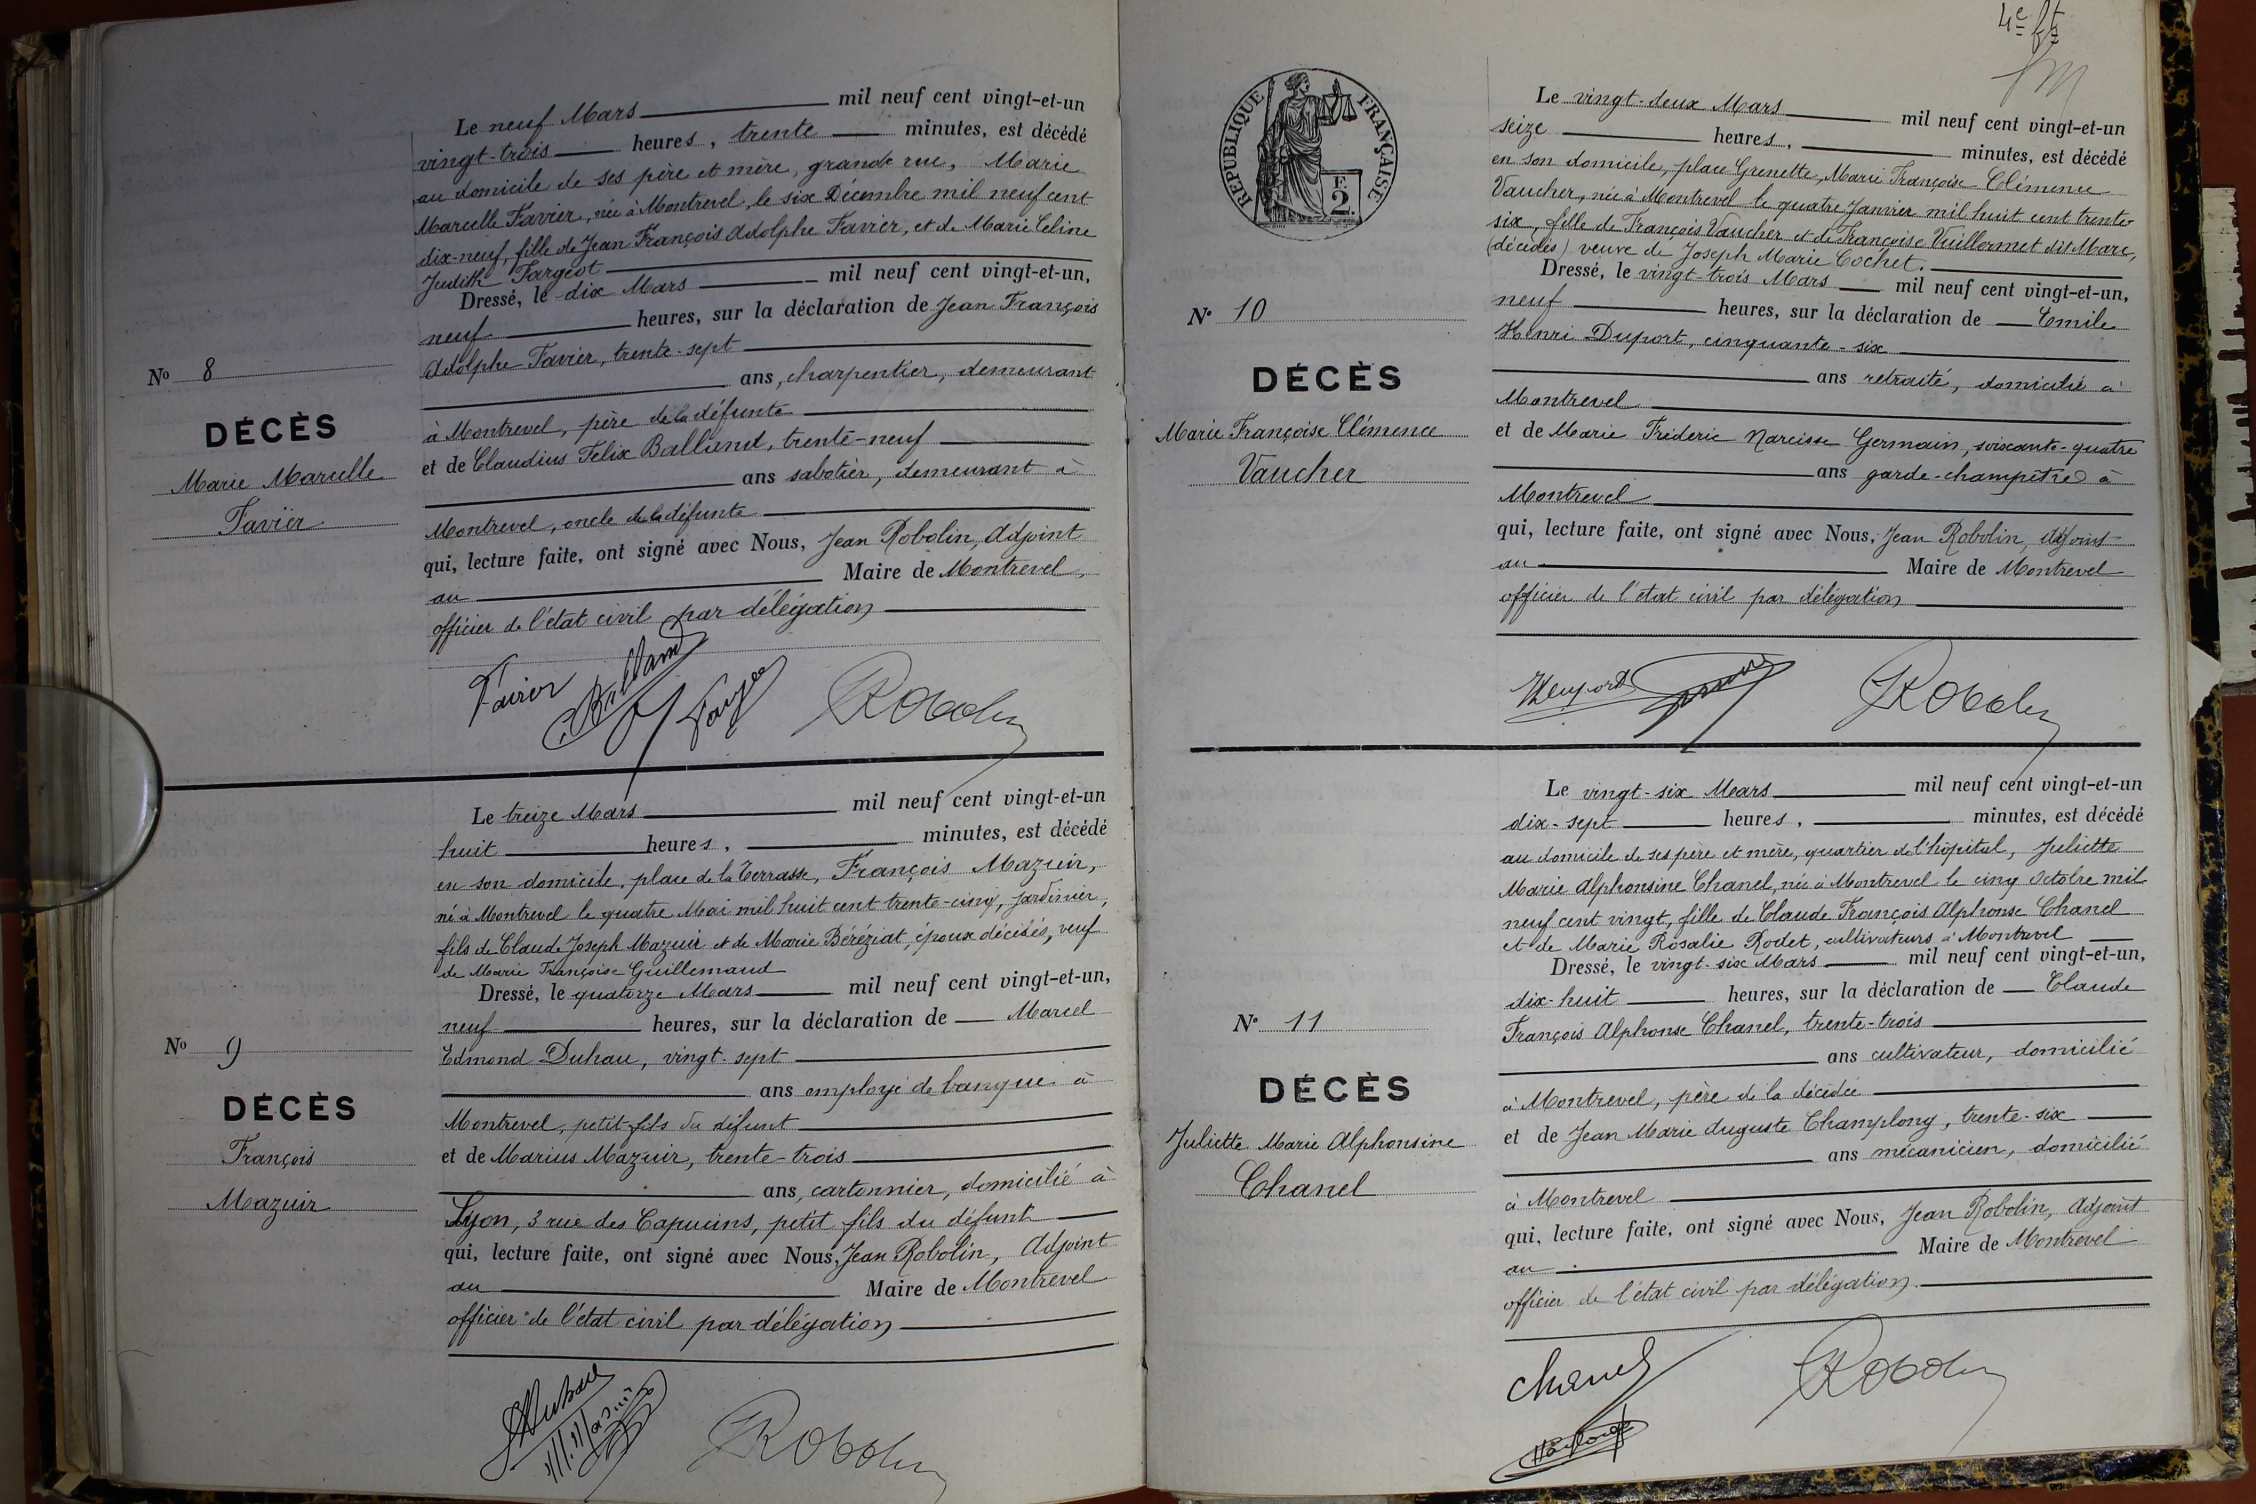 Le neuf Mars mil neuf cent vingt-et-un
vingt-trois heures, trente minutes, est décédé
au domicile de ses père et mère, grande rue, Marie
Marcelle Favier, née à Montrevel, le six Décembre mil neuf cent
dix-neuf, fille de Jean François Adolphe Favier, et de Marie Celine
Judith Fargeot
Dressé, le dix Mars mil neuf cent vingt-et-un,
neuf heures, sur la déclaration de Jean François
Adolphe Favier, trente-sept
ans, charpentier, demeurant
à Montrevel, père de la défunte
et de Claudius Felix Balland, trente-neuf
ans sabotier, demeurant à
Montrevel, oncle de la défunte
qui, lecture faite, ont signé avec Nous, Jean Robolin, Adjoint
au Maire de Montrevel,
officier de l'état civil par délégation
No 8
DÉCÈS
Marie Marcelle
Favier
Favier Balland Robolin
Le treize Mars mil neuf cent vingt-et-un
huit heures, minutes, est décédé
en son domicile, place de la Terrasse, François Mazuir,
né à Montrevel le quatre Mai mil huit cent trente-cinq, jardinier,
fils de Claude Joseph Mazuir et de Marie Béréziat, époux décédés, veuf
de Marie Françoise Guillemaud
Dressé, le quatorze Mars mil neuf cent vingt-et-un,
neuf heures, sur la déclaration de Marcel
Edmond Duhau, vingt-sept
ans employé de banque à
Montrevel, petit-fils du défunt
et de Marius Mazuir, trente-trois
ans, cartonnier, domicilié à
Lyon, 3 rue des Capucins, petit fils du défunt
qui, lecture faite, ont signé avec Nous, Jean Robolin, Adjoint
au Maire de Montrevel
officier de l'état civil par délégation
No 9
DÉCÈS
François
Mazuir
M. Mazuir Robolin
4e ft
RÉPUBLIQUE FRANÇAISE
F.
2.
Le vingt-deux Mars mil neuf cent vingt-et-un
seize heures, minutes, est décédé
en son domicile, place Grenette, Marie Françoise Clémence
Vaucher, née à Montrevel le quatre Janvier mil huit cent trente-
six, fille de François Vaucher et de Françoise Vuillermet dit Marc,
(décédés) veuve de Joseph Marie Cochet.
Dressé, le vingt-trois Mars mil neuf cent vingt-et-un,
neuf heures, sur la déclaration de Emile
Henri Duport, cinquante-six
ans retraité, domicilié à
Montrevel
et de Marie Frédéric Narcisse Germain, soixante-quatre
ans garde-champêtre à
Montrevel
qui, lecture faite, ont signé avec Nous, Jean Robolin, Adjoint
au Maire de Montrevel
officier de l'état civil par délégation
No 10
DÉCÈS
Marie Françoise Clémence
Vaucher
Duport Robolin
Le vingt-six Mars mil neuf cent vingt-et-un
dix-sept heures, minutes, est décédé
au domicile de ses père et mère, quartier de l'hôpital, Juliette
Marie Alphonsine Chanel, née à Montrevel le cinq Octobre mil
neuf cent vingt, fille de Claude François Alphonse Chanel
et de Marie Rosalie Rodet, cultivateurs à Montrevel
Dressé, le vingt-six Mars mil neuf cent vingt-et-un,
dix-huit heures, sur la déclaration de Claude
François Alphonse Chanel, trente-trois
ans cultivateur, domicilié
à Montrevel, père de la décédée
et de Jean Marie Auguste Champlong, trente-six
ans mécanicien, domicilié
à Montrevel
qui, lecture faite, ont signé avec Nous, Jean Robolin, Adjoint
au Maire de Montrevel
officier de l'état civil par délégation.
No 11
DÉCÈS
Juliette Marie Alphonsine
Chanel
Chanel Robolin